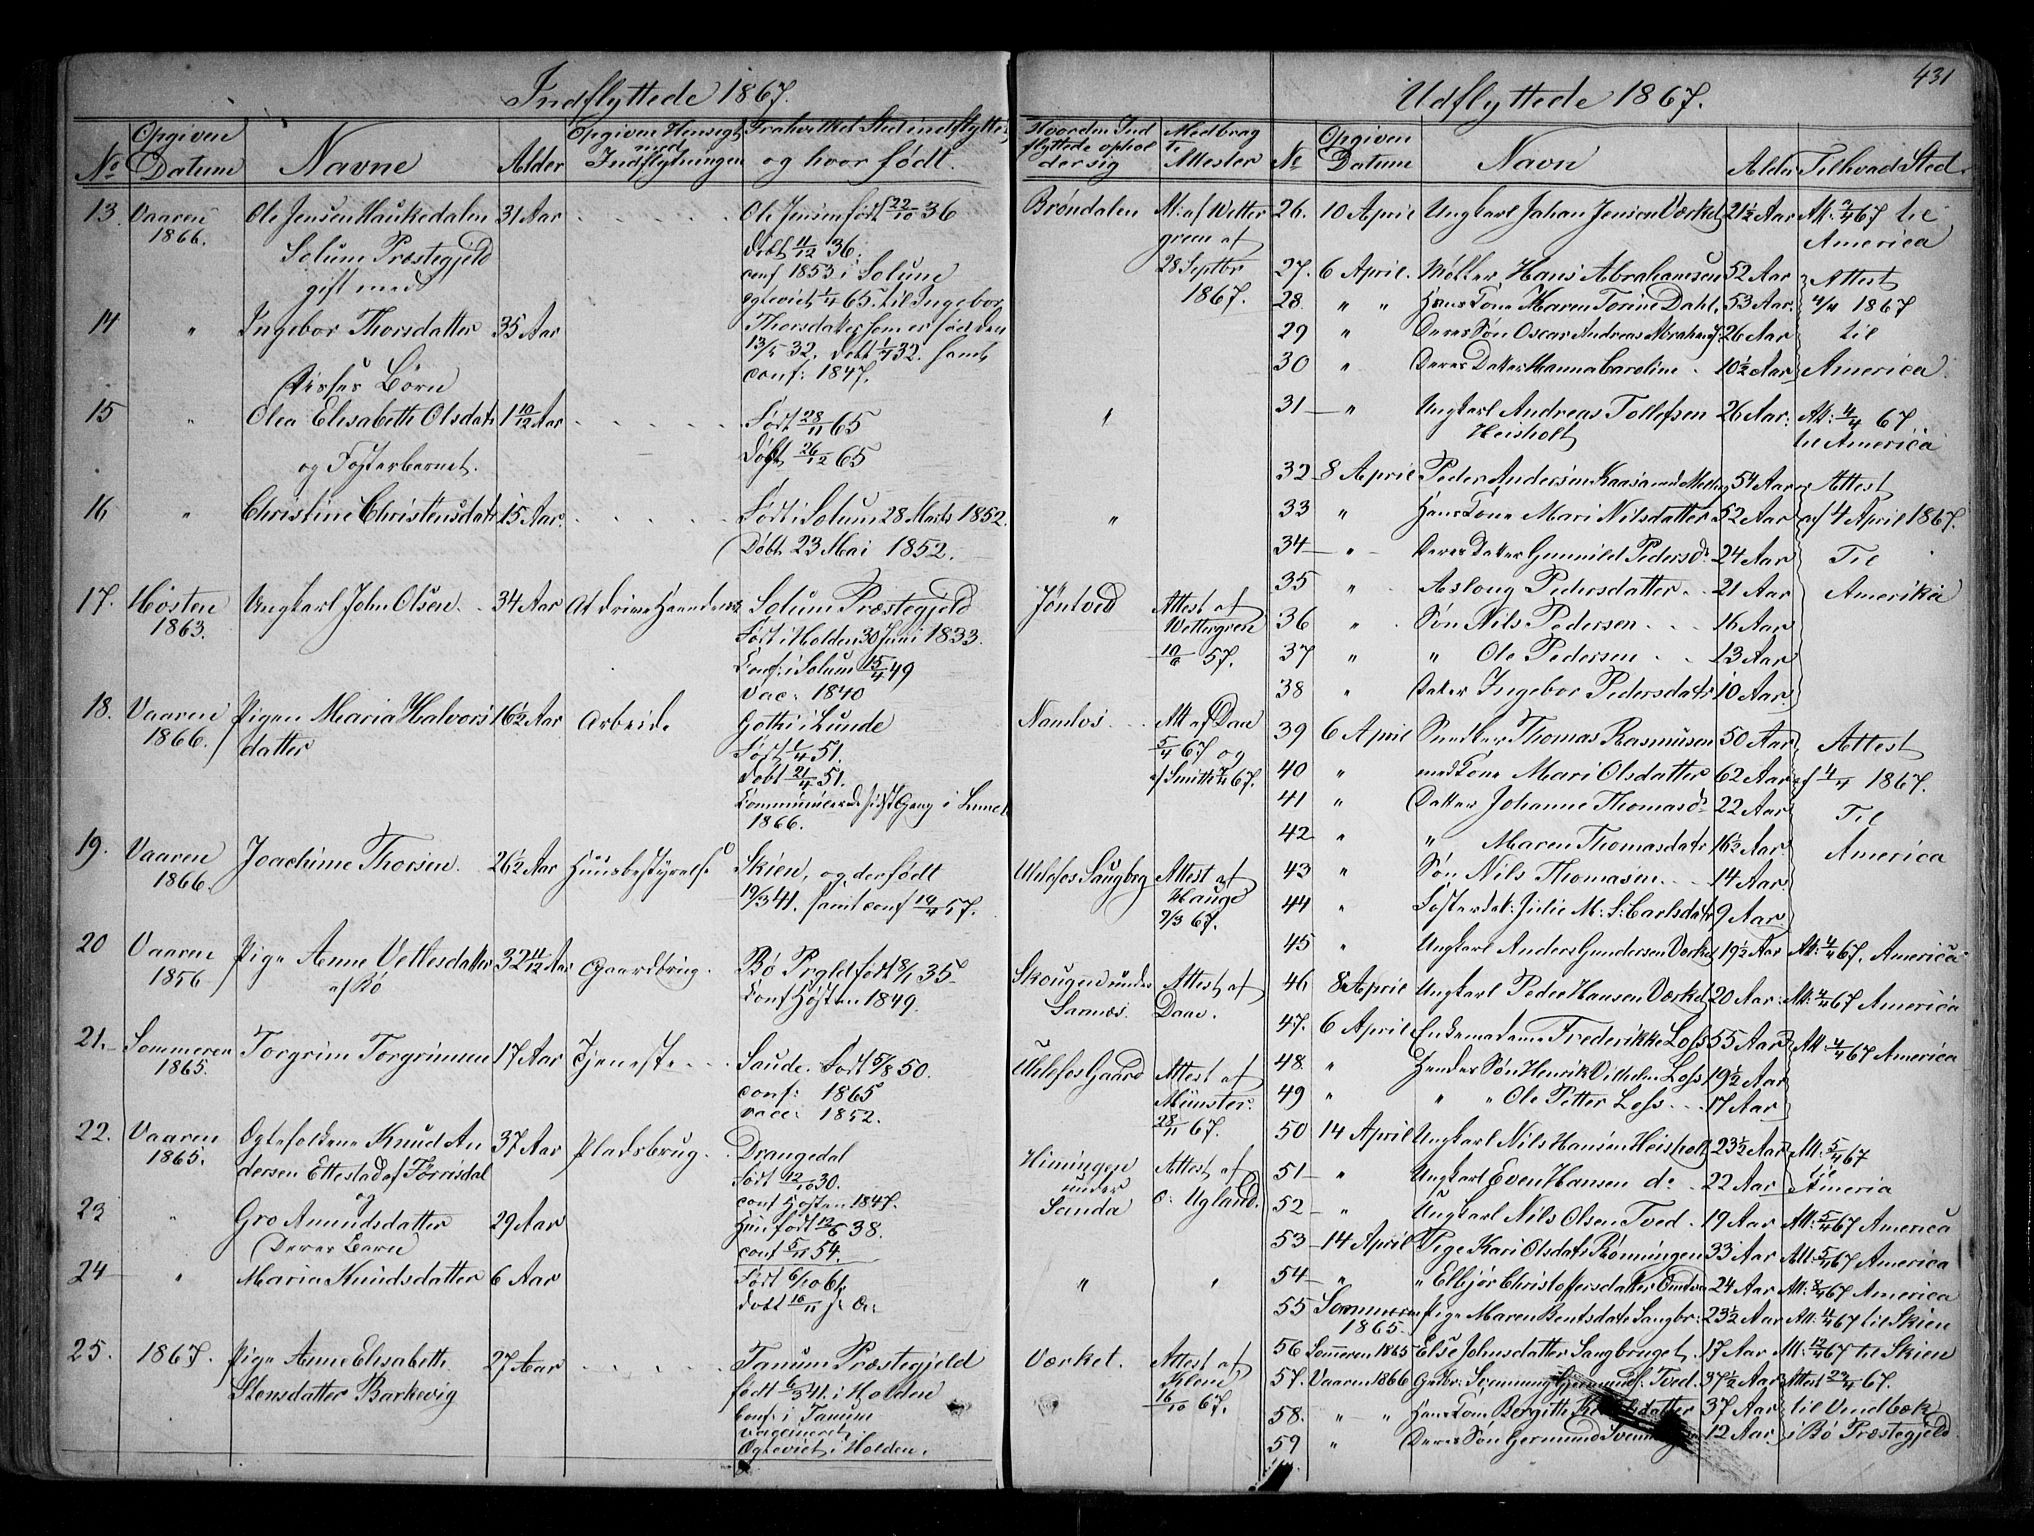 431
Indflyttede 1867.
No
Opgiven Datum
Navne
Alder
Opgiven Hensigt med Indflytningen
Fra hvilket Sted indflyttet, og hvor født.
Hvor den Indflyttede opholder sig
Medbragte Attester
13. Vaaren 1866. Ole Jensen Haukedalen 31 Aar
Solum Præstegjeld
gift med
Ole Jensen født 22/10 36
døbt 11/12 36.
conf 1853 i Solum
egteviet 1/4 65. til Ingebor
Brøndalen
At: af Wettergreen af
28 Septbr
1867.
14 " Ingebor Thorsdatter 35 Aar
Thorsdatter som er født den
13/5 32. døbt 1/7 32. samt
conf: 1847.
Disses Børn
15 " Olea Elisabeth Olsdatr 1 10/12 Aar
Født 28/11 65
Døbt 26/12 65
og Fosterbarnet.
16 " Christine Christensdatr 15 Aar.
Født i Solum 28 Marts 1852.
Døbt 23 Mai 1852.
17. Høsten 1863. Ungkarl John Olsen 34 Aar At drive Haandværk
Solum Præstegjeld
Født i Holden 30 Juni 1833.
Conf: i Solum 15/4 49
vac: 1840
Jøntved
Attest af
Wettergren
10/6 57.
18. Vaaren 1866. Pigen Maria Halvors 16½ Aar Arbeide
datter
Gothi i Lunde
Født 1/4 51.
døbt 21/4 51.
Communicerede sidste Gang i Lunde
1866.
Namlos
Att af Daae
5/4 67 og
af Smitt 67.
19. Vaaren 1866. Joachime Thorsen. 26½ Aar Huusbestyrelse
Skien, og der født
19/3 41. samt conf 19/4 57.
Ulefos Saugbrg
Attest af
Hauge
2/3 67.
20 Vaaren 1856 Pige Anne Vetlesdatter 32 11/12 Aar Gaardbrug.
af Bø
Bø Prgld født 8/1 35
Conf Høsten 1849.
Skougen under
Sannæs.
Attest af
Daae.
21. Sommeren 1865. Torgrim Torgrimsen 17 Aar Tjeneste
Saude. Født 5/8 50.
conf: 1865
vacc: 1852.
Ulefos Gaard
Attest af
Münster.
28/11 67.
22. Vaaren 1865. Egtefolkene Knud An 37 Aar Pladsbrug.
dersen Ettestad af Tørrisdal
og
Drangedal
Født 12/10 30.
conf Høsten 1847.
Hiningen
under
Sanda
Attest af
C: Ugland.
23 " Gro Amundsdatter 29 Aar
Hun født 12/6 38.
conf 5/11 54.
Deres Barn
24 " Maria Knudsdatter 6 Aar
Født 6/10 61.
døbt 10/11 s: A:
" "
25. 1867. Pige Anne Elisabeth 27 Aar
Stensdatter Barkevig
Tanum Præstegjeld
født 6/3 41. i Holden
Conf: i Tanum
vaccineret
Egteviet i Holden.
Værket.
Attest af
Klem
16/10 67.
Udflyttede 1867.
No
Opgiven Datum
Navn
Alder
Til hvad Sted.
26. 10 April Ungkarl Johan Jensen Værket 21½ Aar Att: 9/4 67 til
America
27. 6 April. Møller Hans Abrahamsen 52 Aar Attest
28. " " Hans Kone Maren Torine Dahl. 53 Aar. 4/4 1867
29 " Deres Søn Oscar Andreas Abrahams. 26 Aar til
30 " Deres Datter Hanna Caroline 10½ Aar America
31 " Ungkarl Andreas Tollefsen 26 Aar: Att: 4/4 67
Heisholt til America
32 8 April Peder Andersen Kaasa med 54 Aar Attest
33 " Hans Kone Mari Nilsdatter 52 Aar af 4 April 1867.
34 " Deres Datter Gunnild Pedersdr 24 Aar Til
35 " Asloug Pedersdatter 21 Aar Amerika
36 " Søn Nils Pedersen 16 Aar
37 " " Ole Pedersen 13 Aar
38 " Datter Ingebor Pedersdatr 10 Aar
39 6 April Snedker Thomas Rasmusen 50 Aar Attest
40 " med Kone Mari Olsdatter 62 Aar af 4/4 1867.
41 " Datter Johanne Thomasdr 22 Aar Til
42 " " Maren Thomasdatr 16½ Aar America
43 " Søn Nils Thomasen 14 Aar
44 " Fosterdat: Julie M: S: Carlsdatr 9 Aar
45 " Ungkarl Anders Gundersen Værket 19½ Aar Att: 4/4 67. America
46 8 April Ungkarl Peder Hansen Værket 20 Aar. Att: 4/4 67 America
47. 6 April Enkemadame Frederikke Loss 55 Aar Att: 4/4 67 America
48. " Hendes Søn Henrik Vilhelm Loss 19½ Aar
49 " " " Ole Petter Loss 17 Aar
50 14 April Ungkarl Nils Hansen Heisholt 23½ Aar Att: 5/4 67
51 " Ungkarl Even Hansen do 22 Aar til America
52 " Ungkarl Nils Olsen Tved. 19 Aar Att: 5/4 67 America
53 14 April Pige Kari Olsdatr Rønningen 33 Aar Att: 5/4 67 America
54 " " Elbjør Christoffersdatter 24 Aar Att: 8/4 67 America
55 Sommeren 1865 Pige Maren Bentsdatr Saugbr: 23½ Aar Att: 11/4 67 til Skien
56 Sommeren 1865 Else Johnsdatter Saugbruget. 17 Aar Att: 12/4 67 til Skien
57. Vaaren 1866 Grdbr: Svennung Germunds: Tved. 37½ Aar Attest 23/4 67.
58. " " Hans Kone Bergitte 37 Aar til Vindbæk
59 " Deres Søn Germund 12 Aar i Bø Præstegjeld